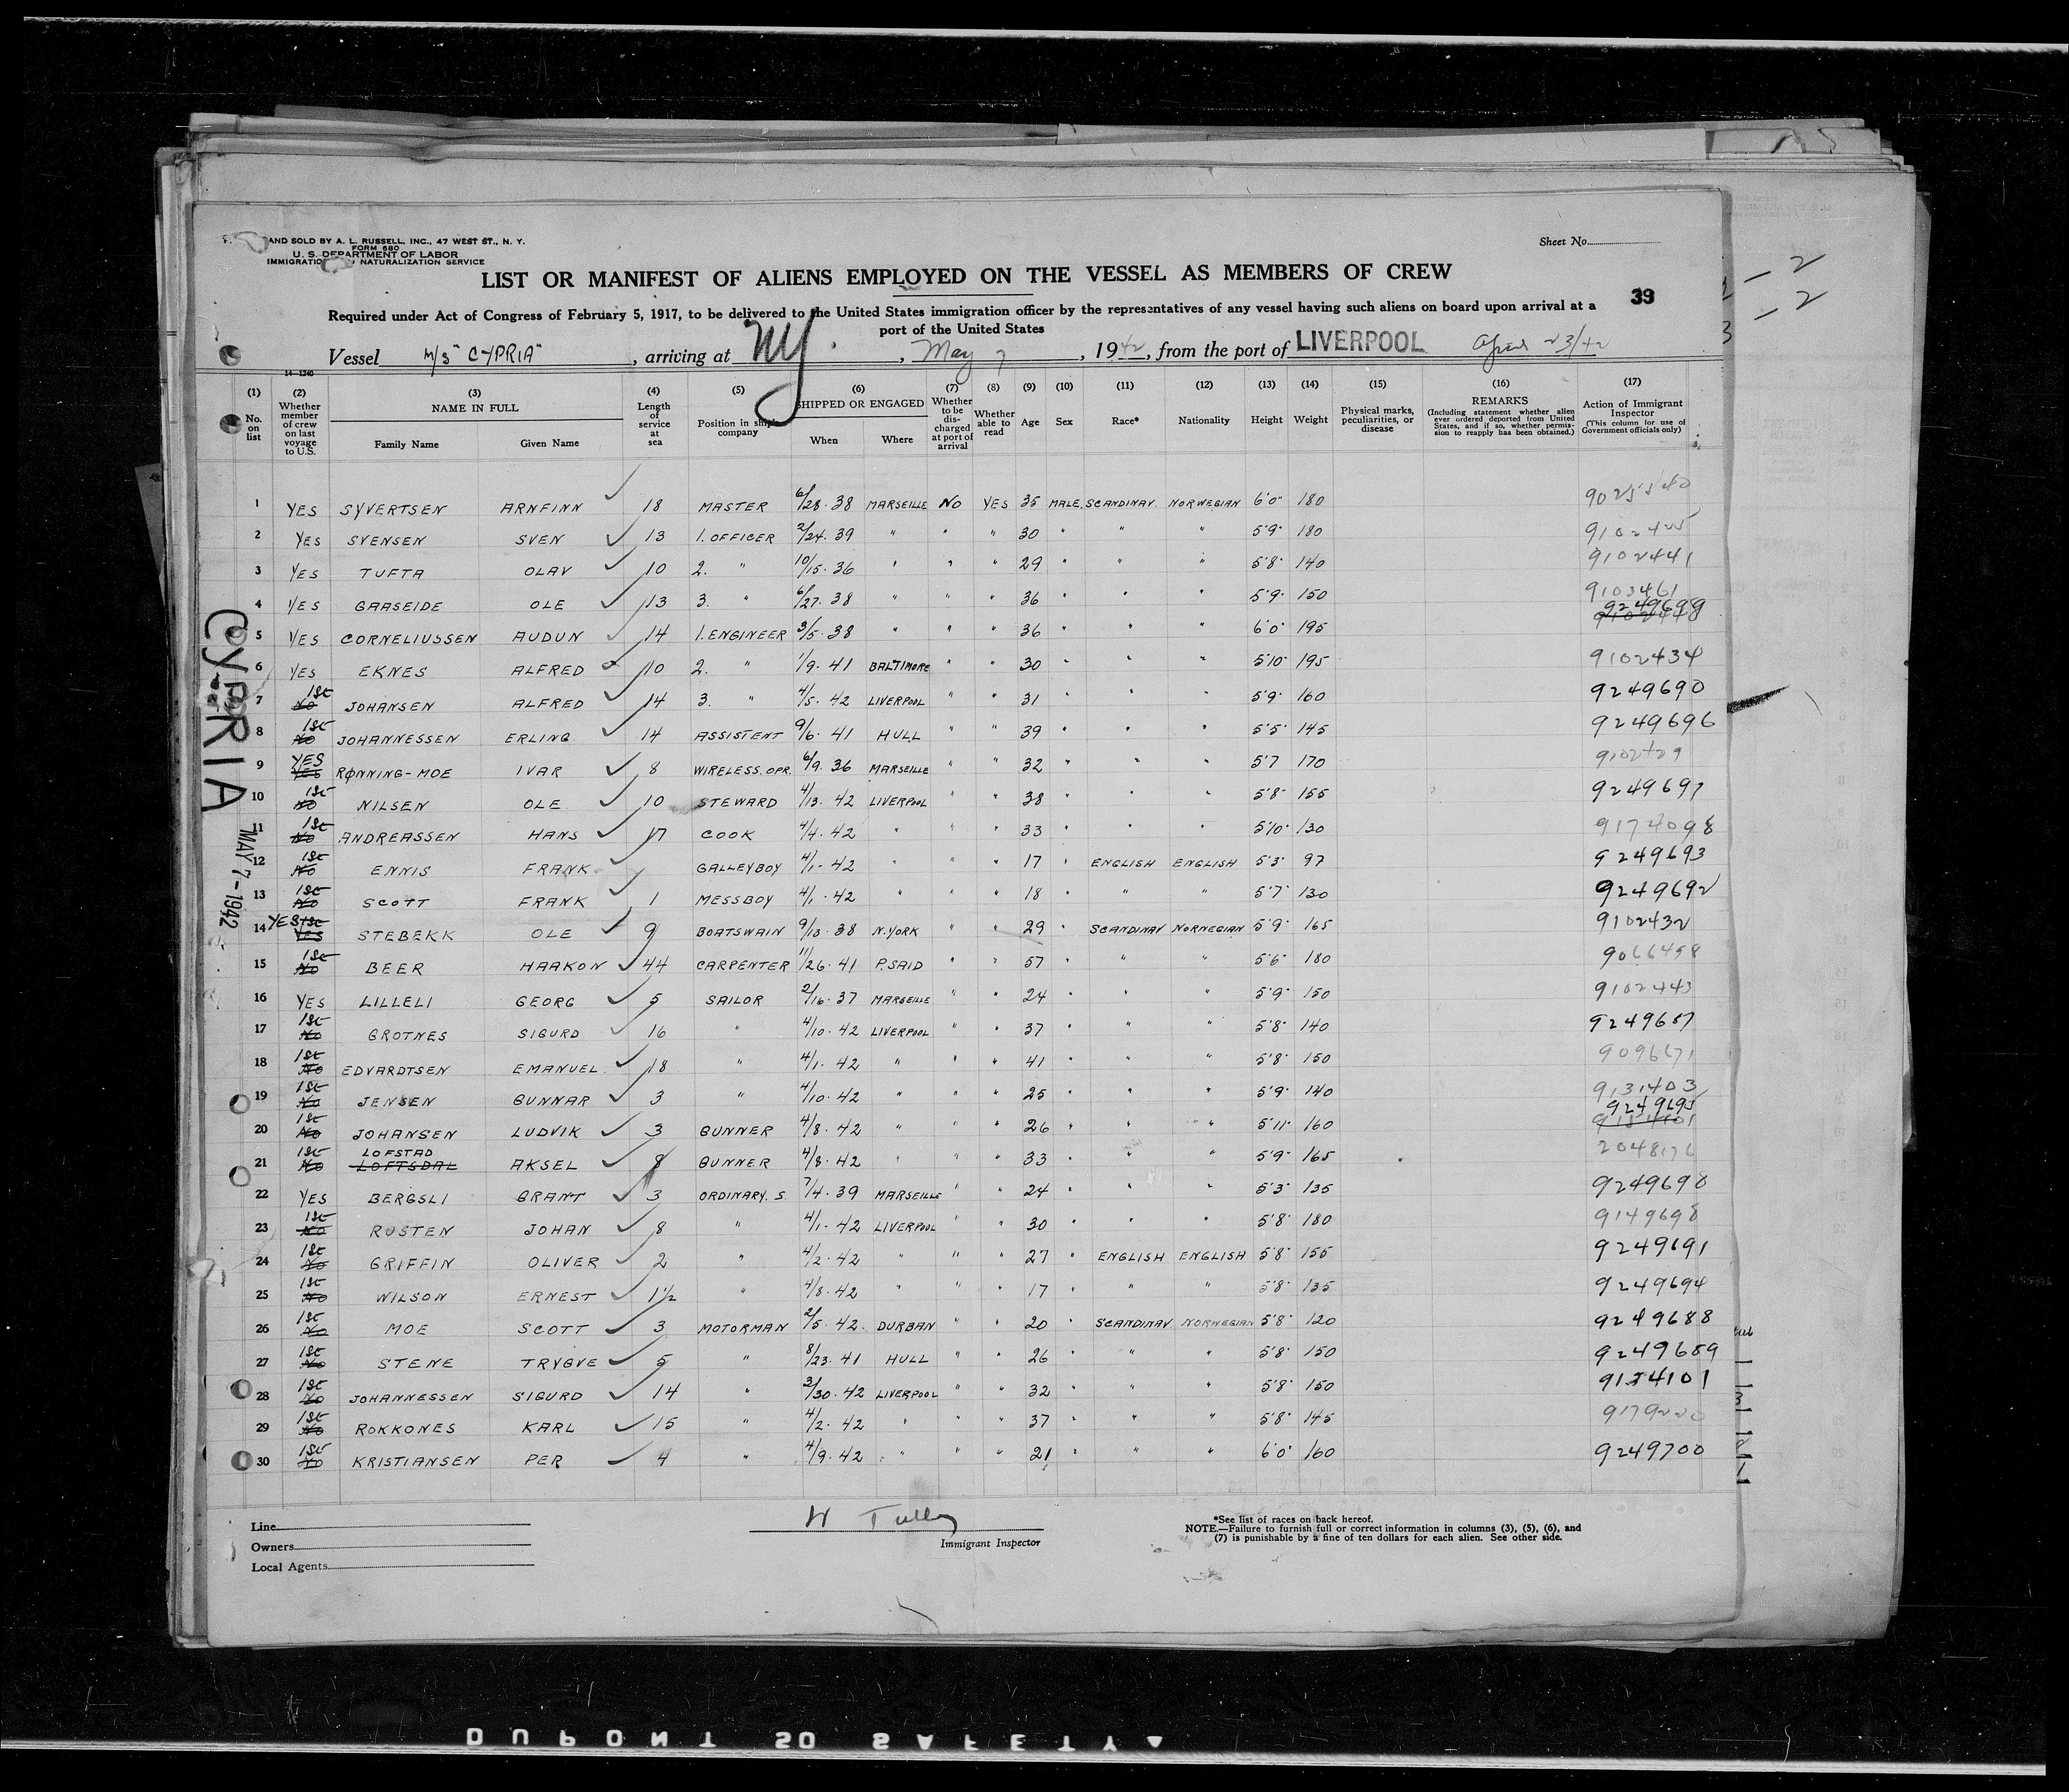 AND SOLD BY A. L. RUSSELL, INC., 47 WEST ST., N. Y.
FORM 680
U. S. DEPARTMENT OF LABOR
IMMIGRATION NATURALIZATION SERVICE
Sheet No.
LIST OR MANIFEST OF ALIENS EMPLOYED ON THE VESSEL AS MEMBERS OF CREW
39
Required under Act of Congress of February 5, 1917, to be delivered to the United States immigration officer by the representatives of any vessel having such aliens on board upon arrival at a
port of the United States
Vessel M/S "CYPRIA", arriving at NY., May 7, 1942, from the port of LIVERPOOL April 23/42
14-1240
(1) No. on list
(2) Whether member of crew on last voyage to U.S.
(3) NAME IN FULL Family Name Given Name
(4) Length of service at sea
(5) Position in ship's company
(6) SHIPPED OR ENGAGED When Where
(7) Whether to be discharged at port of arrival
(8) Whether able to read
(9) Age
(10) Sex
(11) Race*
(12) Nationality
(13) Height
(14) Weight
(15) Physical marks, peculiarities, or disease
(16) REMARKS (Including statement whether alien ever ordered deported from United States, and if so, whether permission to reapply has been obtained.)
(17) Action of Immigrant Inspector (This column for use of Government officials only)
1 YES SYVERTSEN ARNFINN 18 MASTER 6/28.38 MARSEILLE NO YES 35 MALE SCANDINAV. NORWEGIAN 6'0" 180 9025540
2 YES SVENSEN SVEN 13 1. OFFICER 2/24.39 " " " 30 " " " 5'9" 180 9102425
3 YES TUFTA OLAV 10 2. " 10/15.36 " " " 29 " " " 5'8" 140 9102441
4 YES GAASEIDE OLE 13 3. " 6/27.38 " " " 36 " " " 5'9" 150 9103461
5 YES CORNELIUSSEN AUDUN 14 1. ENGINEER 3/5.38 " " " 36 " " " 6'0" 195 9249699
6 YES EKNES ALFRED 10 2. " 1/9.41 BALTIMORE " " 30 " " " 5'10" 195 9102434
7 1st NO JOHANSEN ALFRED 14 3. " 4/5.42 LIVERPOOL " " 31 " " 5'9" 160 9249690
8 1st NO JOHANNESSEN ERLING 14 ASSISTENT 9/6.41 HULL " " 39 " " " 5'5" 145 9249696
9 YES YES RØNNING-MOE IVAR 8 WIRELESS. OPR. 6/9.36 MARSEILLE " " 32 " " " 5'7 170 9102429
10 1st NO NILSEN OLE 10 STEWARD 4/13.42 LIVERPOOL " " 38 " " " 5'8" 155 9249697
11 1st NO ANDREASSEN HANS 17 COOK 4/4.42 " " " 33 " " " 5'10" 130 9174098
12 1st NO ENNIS FRANK GALLEYBOY 4/1.42 " " " 17 " ENGLISH ENGLISH 5'3" 97 9249693
13 1st NO SCOTT FRANK 1 MESSBOY 4/1.42 " " " 18 " " " 5'7" 130 9249692
14 YES 1st YES STEBEKK OLE 9 BOATSWAIN 9/13.38 N.YORK " " 29 " SCANDINAV NORWEGIAN 5'9" 165 9102432
15 1st NO BEER HAAKON 44 CARPENTER 11/26.41 P.SAID " " 57 " " " 5'6" 180 9066458
16 YES LILLELI GEORG 5 SAILOR 2/16.37 MARSEILLE " " 24 " " " 5'9" 150 9102443
17 1st NO GROTNES SIGURD 16 " 4/10.42 LIVERPOOL " " 37 " " " 5'8" 140 9249687
18 1st NO EDVARDTSEN EMANUEL 18 " 4/1.42 " " " 41 " " " 5'8" 150 9096671
19 1st NO JENSEN GUNNAR 3 " 4/10.42 " " " 25 " " " 5'9" 140 9131403
20 1st NO JOHANSEN LUDVIK 3 GUNNER 4/8.42 " " " 26 " " " 5'11" 160 9249695 9154101
21 1st NO LOFSTAD LOFTSDAL AKSEL 8 GUNNER 4/8.42 " " " 33 " " " 5'9" 165
22 YES BERGSLI GRANT 3 ORDINARY. S. 7/4.39 MARSEILLE " " 24 " " " 5'3" 135 9249698
23 1st NO RUSTEN JOHAN 8 " 4/1.42 LIVERPOOL " " 30 " " " 5'8" 180 9149698
24 1st NO GRIFFIN OLIVER 2 " 4/2.42 " " " 27 " ENGLISH ENGLISH 5'8" 155 9249691
25 1st NO WILSON ERNEST 1 1/2 " 4/8.42 " " " 17 " " " 5'8" 135 9249694
26 1st NO MOE SCOTT 3 MOTORMAN 2/5.42. DURBAN " " 20 " SCANDINAV NORWEGIAN 5'8" 120 9249688
27 1st NO STENE TRYGVE 5 " 8/23.41 HULL " " 26 " " " 5'8" 150 9249689
28 1st NO JOHANNESSEN SIGURD 14 " 3/30.42 LIVERPOOL " " 32 " " " 5'8" 150 9154101
29 1st NO ROKKONES KARL 15 " 4/2.42 " " " 37 " " " 5'8" 145 9179220
30 1st NO KRISTIANSEN PER 4 " 4/9.42 " " " 21 " " " 6'0" 160 9249700
CYPRIA
MAY 7-1942
Line
Owners
Local Agents
W Tulley
Immigrant Inspector
*See list of races on back hereof.
NOTE.—Failure to furnish full or correct information in columns (3), (5), (6), and
(7) is punishable by a fine of ten dollars for each alien. See other side.
DUPONT SO SAFETY